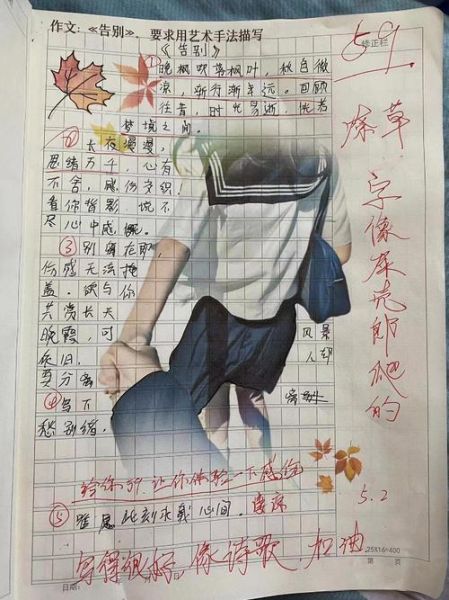 作文:《告别》. 要求用艺术手法描写
《告别》
59
修正栏
①晚枫吹落枫叶,秋自微
凉,渐行渐年远。回顾
往昔,时光易逝,恍若
梦境之间。
②长夜漫漫,
思绪万千,心有
不舍,感伤交织!
看你背影,说不
尽心中感慨。
③别离在即,
伤感无法掩
盖。欲与你
共赏长天
晚霞,可 风景
依旧, 人却
要分离
④当下
愁别绪。
潦草
字像屎壳郎爬的
给你59,让你体验一下感伤
5.2
⑤唯愿此刻永载心间。
写得很好。像诗歌 加油
25X16=400
日期:
第 页